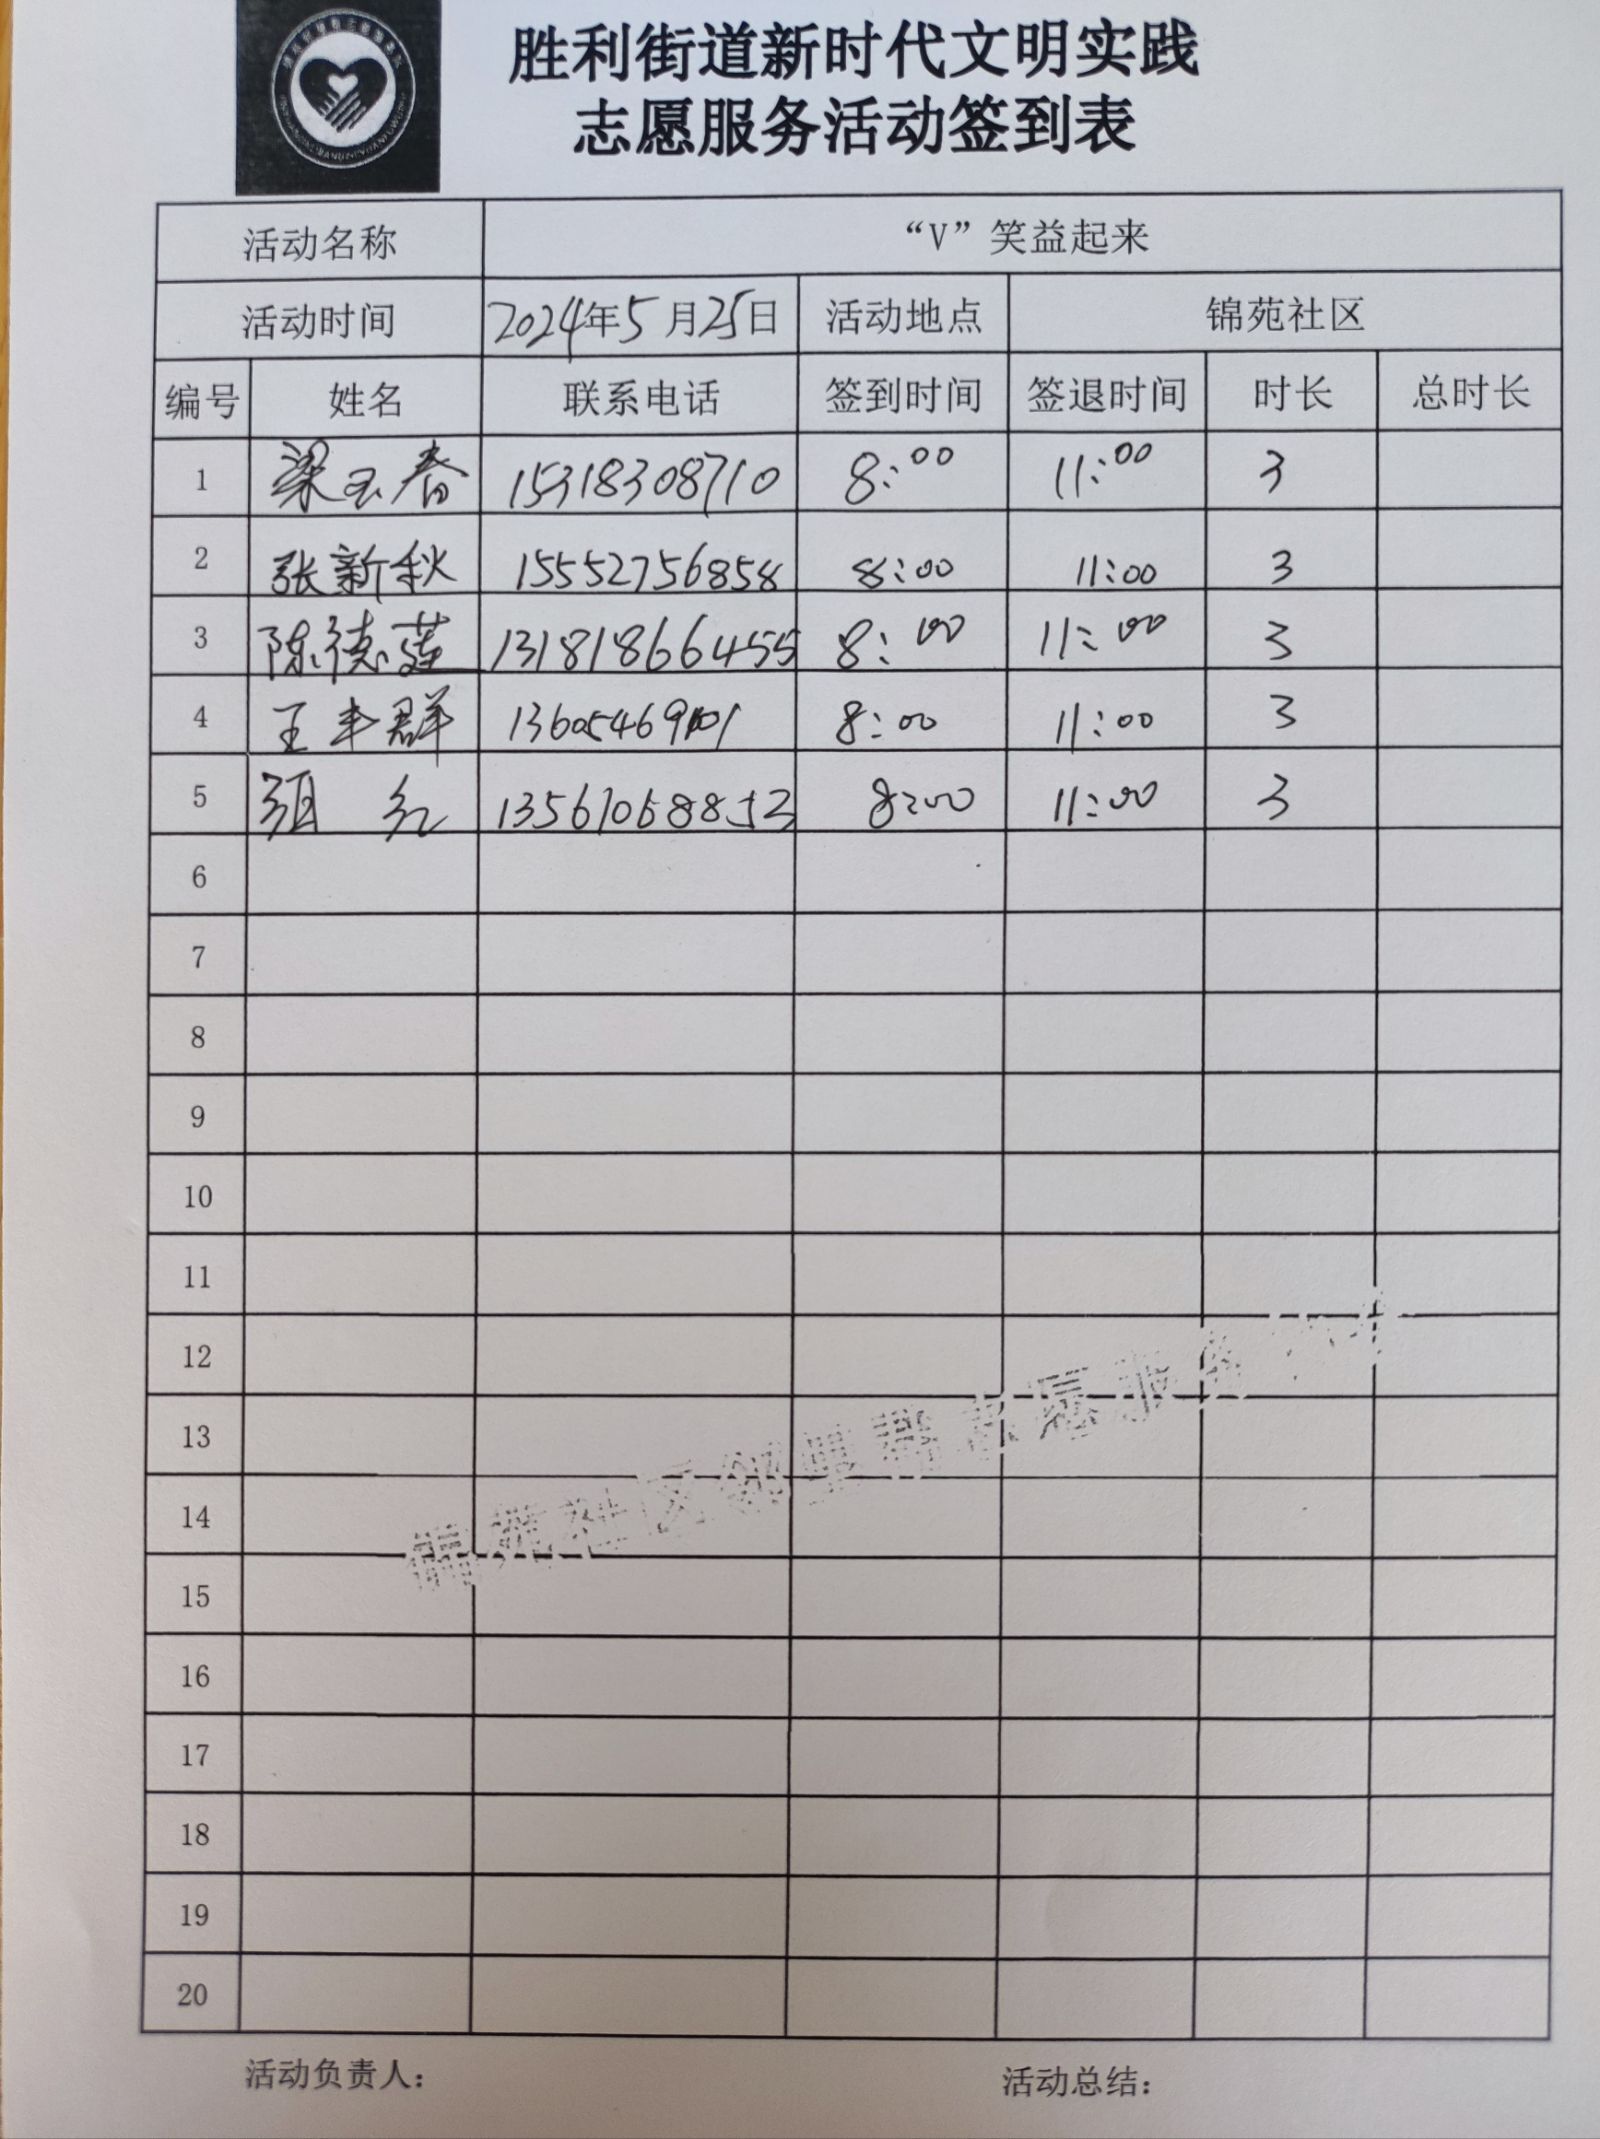 胜利街道新时代文明实践
志愿服务活动签到表
活动名称 “V”笑益起来
活动时间 2024年5月25日 活动地点 锦苑社区
编号 姓名 联系电话 签到时间 签退时间 时长 总时长
1 梁玉春 15318308710 8:00 11:00 3
2 张新秋 15552756858 8:00 11:00 3
3 陈德莲 13181866455 8:00 11:00 3
4 王丰群 8:00 11:00 3
5 红 13561068852 8:00 11:00 3
6
7
8
9
10
11
12
13
14
15
16
17
18
19
20
锦苑社区邻里帮志愿服务
活动负责人： 活动总结：